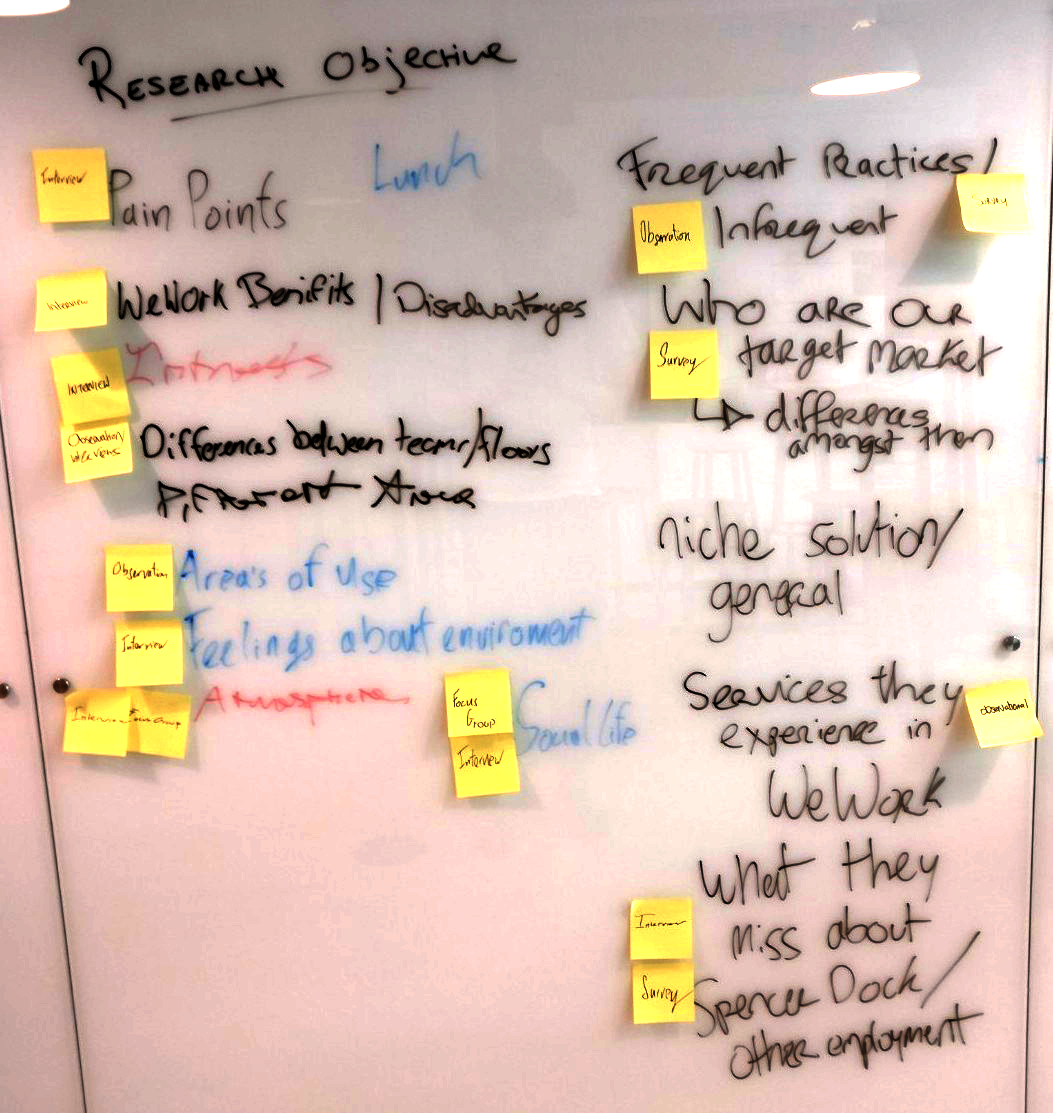 RESEARCH Objective
Interview
Pain Points
Lunch
Interview
WeWork Benifits / Disadvantages
INTERVIEW
Intrests
Observation/
Interviews
Differences between teams/floors
Different Area
Observation
Area's of Use
Interview
Feelings about enviroment
Interview
Focus Group
Atmosphere
Focus
Group
Interview
Social life
Frequent Practices/
Survey
Observation
Infrequent
Who are our
Survey
target market
↳ differences
amongst them
niche solution/
general
Services they
observational
experience in
WeWork
What they
Interview
miss about
Survey
Spencer Dock/
other employment